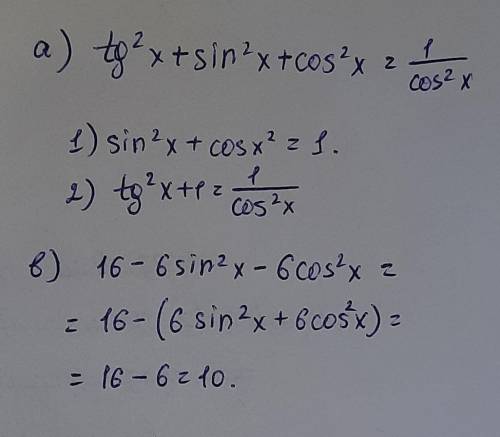 а) tg²x + sin²x + cos²x = 1/cos²x
1) sin²x + cosx² = 1.
2) tg²x + 1 = 1/cos²x
в) 16 - 6sin²x - 6cos²x =
= 16 - (6 sin²x + 6cos²x) =
= 16 - 6 = 10.